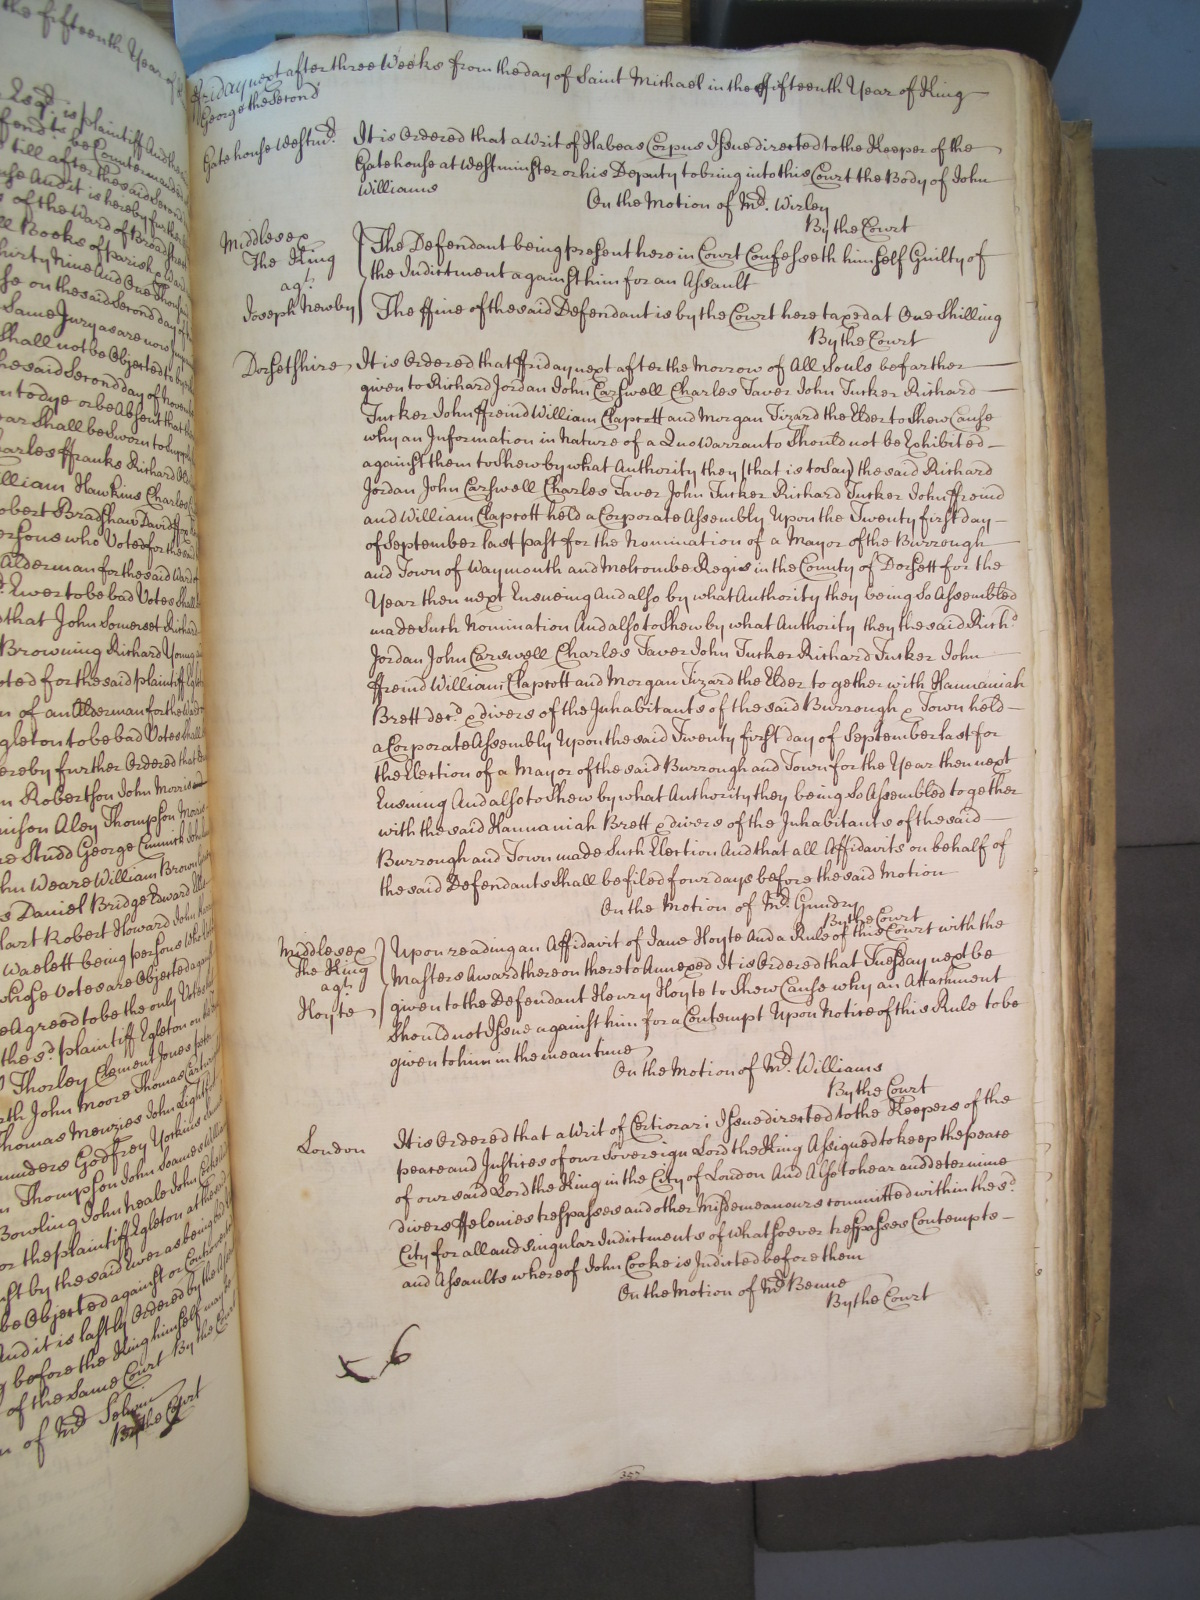 the fifteenth Year of
Esqr. is plaintiff And the
be Countermanded
till after the said Second
And it is hereby further
of the Ward of Broadstreet
Books of parish
thirty Nine And One Thousand
on the said Second day of the
Same Jury as are now
Shall not be Objected to by
the said Second day of November
to dye or be Absent that
Shall be Sworn to Supply
Charles ffranks Richard
William Hawkins Charles
Robert Bradshaw David ffox
persons who Voted for the said
Alderman for the said Ward of
Ewer to be bad Votes Shall
that John Somerset Richard
Browning Richard Young
Voted for the said plaintiff
of an Alderman for the Ward
Egleton to be bad Votes Shall
hereby further Ordered that
Robertson John Morris
Aley Thompson
Studd George John
John Weare William Brown
Daniel Bridge Edward
Hart Robert Howard John
Waclett being persons Who
whose Votes are Objected against
Agreed to be the only Votes
the sd. plaintiff Egleton on
Thorley Clement Jones
John Moore Thomas
Thomas Menzies John
Saunders Godfrey Yorkins
Thompson John Seames William
Bowling John Neale John
for the plaintiff Egleton at the said
by the said Ewer as being bad
be Objected against or Controverted
And it is lastly Ordered by the
before the King himself may
of the Same Court By the Court
of Mr. Selwin
By the Court
ffriday next after three Weeks from the day of Saint Michael in the ffifteenth Year of King
George the Second
Gatehouse Westmr. It is Ordered that a Writ of Habeas Corpus Issue directed to the Keeper of the
Gatehouse at Westminster or his Deputy to bring into this Court the Body of John
Williams
On the Motion of Mr. Wirley
By the Court
Middlesex The Defendant being present here in Court Confesseth himself Guilty of
The King the Indictment against him for an Assault
agt.
Joseph Newby The ffine of the said Defendant is by the Court here taxed at One Shilling
By the Court
Dorsetshire It is Ordered that ffriday next after the Morrow of All Souls be farther
given to Richard Jordan John Carswell Charles Taver John Tucker Richard
Tucker John ffreind William Claprott and Morgan Tizard the Elder to Shew Cause
why an Information in Nature of a Quo Warranto Should not be Exhibited
against them to Shew by what Authority they (that is to say) the said Richard
Jordan John Carswell Charles Taver John Tucker Richard Tucker John ffreind
and William Claprott held a Corporate Assembly Upon the Twenty first day
of September last past for the Nomination of a Mayor of the Burrough
and Town of Waymouth and Melcombe Regis in the County of Dorsett for the
Year then next Ensueing And also by what Authority they being So Assembled
made Such Nomination And also to Shew by what Authority they the said Richd.
Jordan John Carswell Charles Taver John Tucker Richard Tucker John
ffreind William Claprott and Morgan Tizard the Elder to gether with Hannaniah
Brett decd. & divers of the Inhabitants of the said Burrough & Town held
a Corporate Assembly Upon the said Twenty first day of September last for
the Election of a Mayor of the said Burrough and Town for the Year then next
Ensuing And also to Shew by what Authority they being So Assembled to gether
with the said Hannaniah Brett & divers of the Inhabitants of the said
Burrough and Town made Such Election And that all Affidavits on behalf of
the said Defendants Shall be filed four days before the said Motion
On the Motion of Mr. Gundry
By the Court
Middlesex Upon reading an Affidavit of Jane Hoyte And a Rule of this Court with the
The King Masters Award thereon thereto Annexed It is Ordered that Tuesday next be
agt.
Hoyte given to the Defendant Henry Hoyte to Shew Cause why an Attachment
Should not Issue against him for a Contempt Upon Notice of this Rule to be
given to him in the mean time
On the Motion of Mr. Williams
By the Court
London It is Ordered that a Writ of Certiorari Issue directed to the Keepers of the
peace and Justices of our Sovereign Lord the King Assigned to keep the peace
of our said Lord the King in the City of London And Also to hear and determine
divers ffelonies trespasses and other Misdemeanours committed within the sd.
City for all and singular Indictments of whatsoever trespasses Contempts
and Assaults whereof John Cooke is Indicted before them
On the Motion of Mr. Benne
By the Court